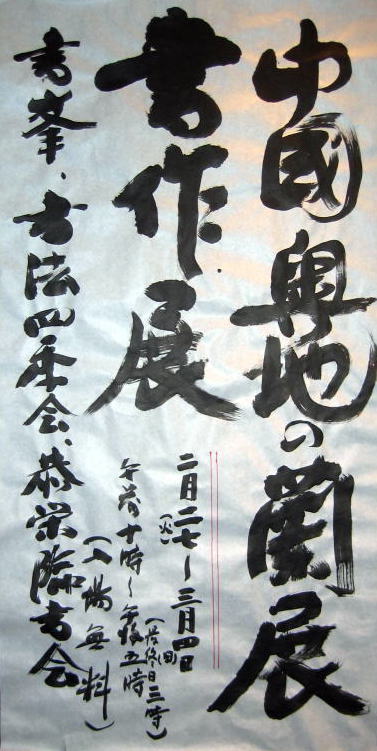 中國奥地の蘭展
書作展
二月二七〜三月四日
(火)
(日)
午前十時〜午後五時
(最終日三時)
(入場無料)
書峯、書法四季会、恭栄臨書会